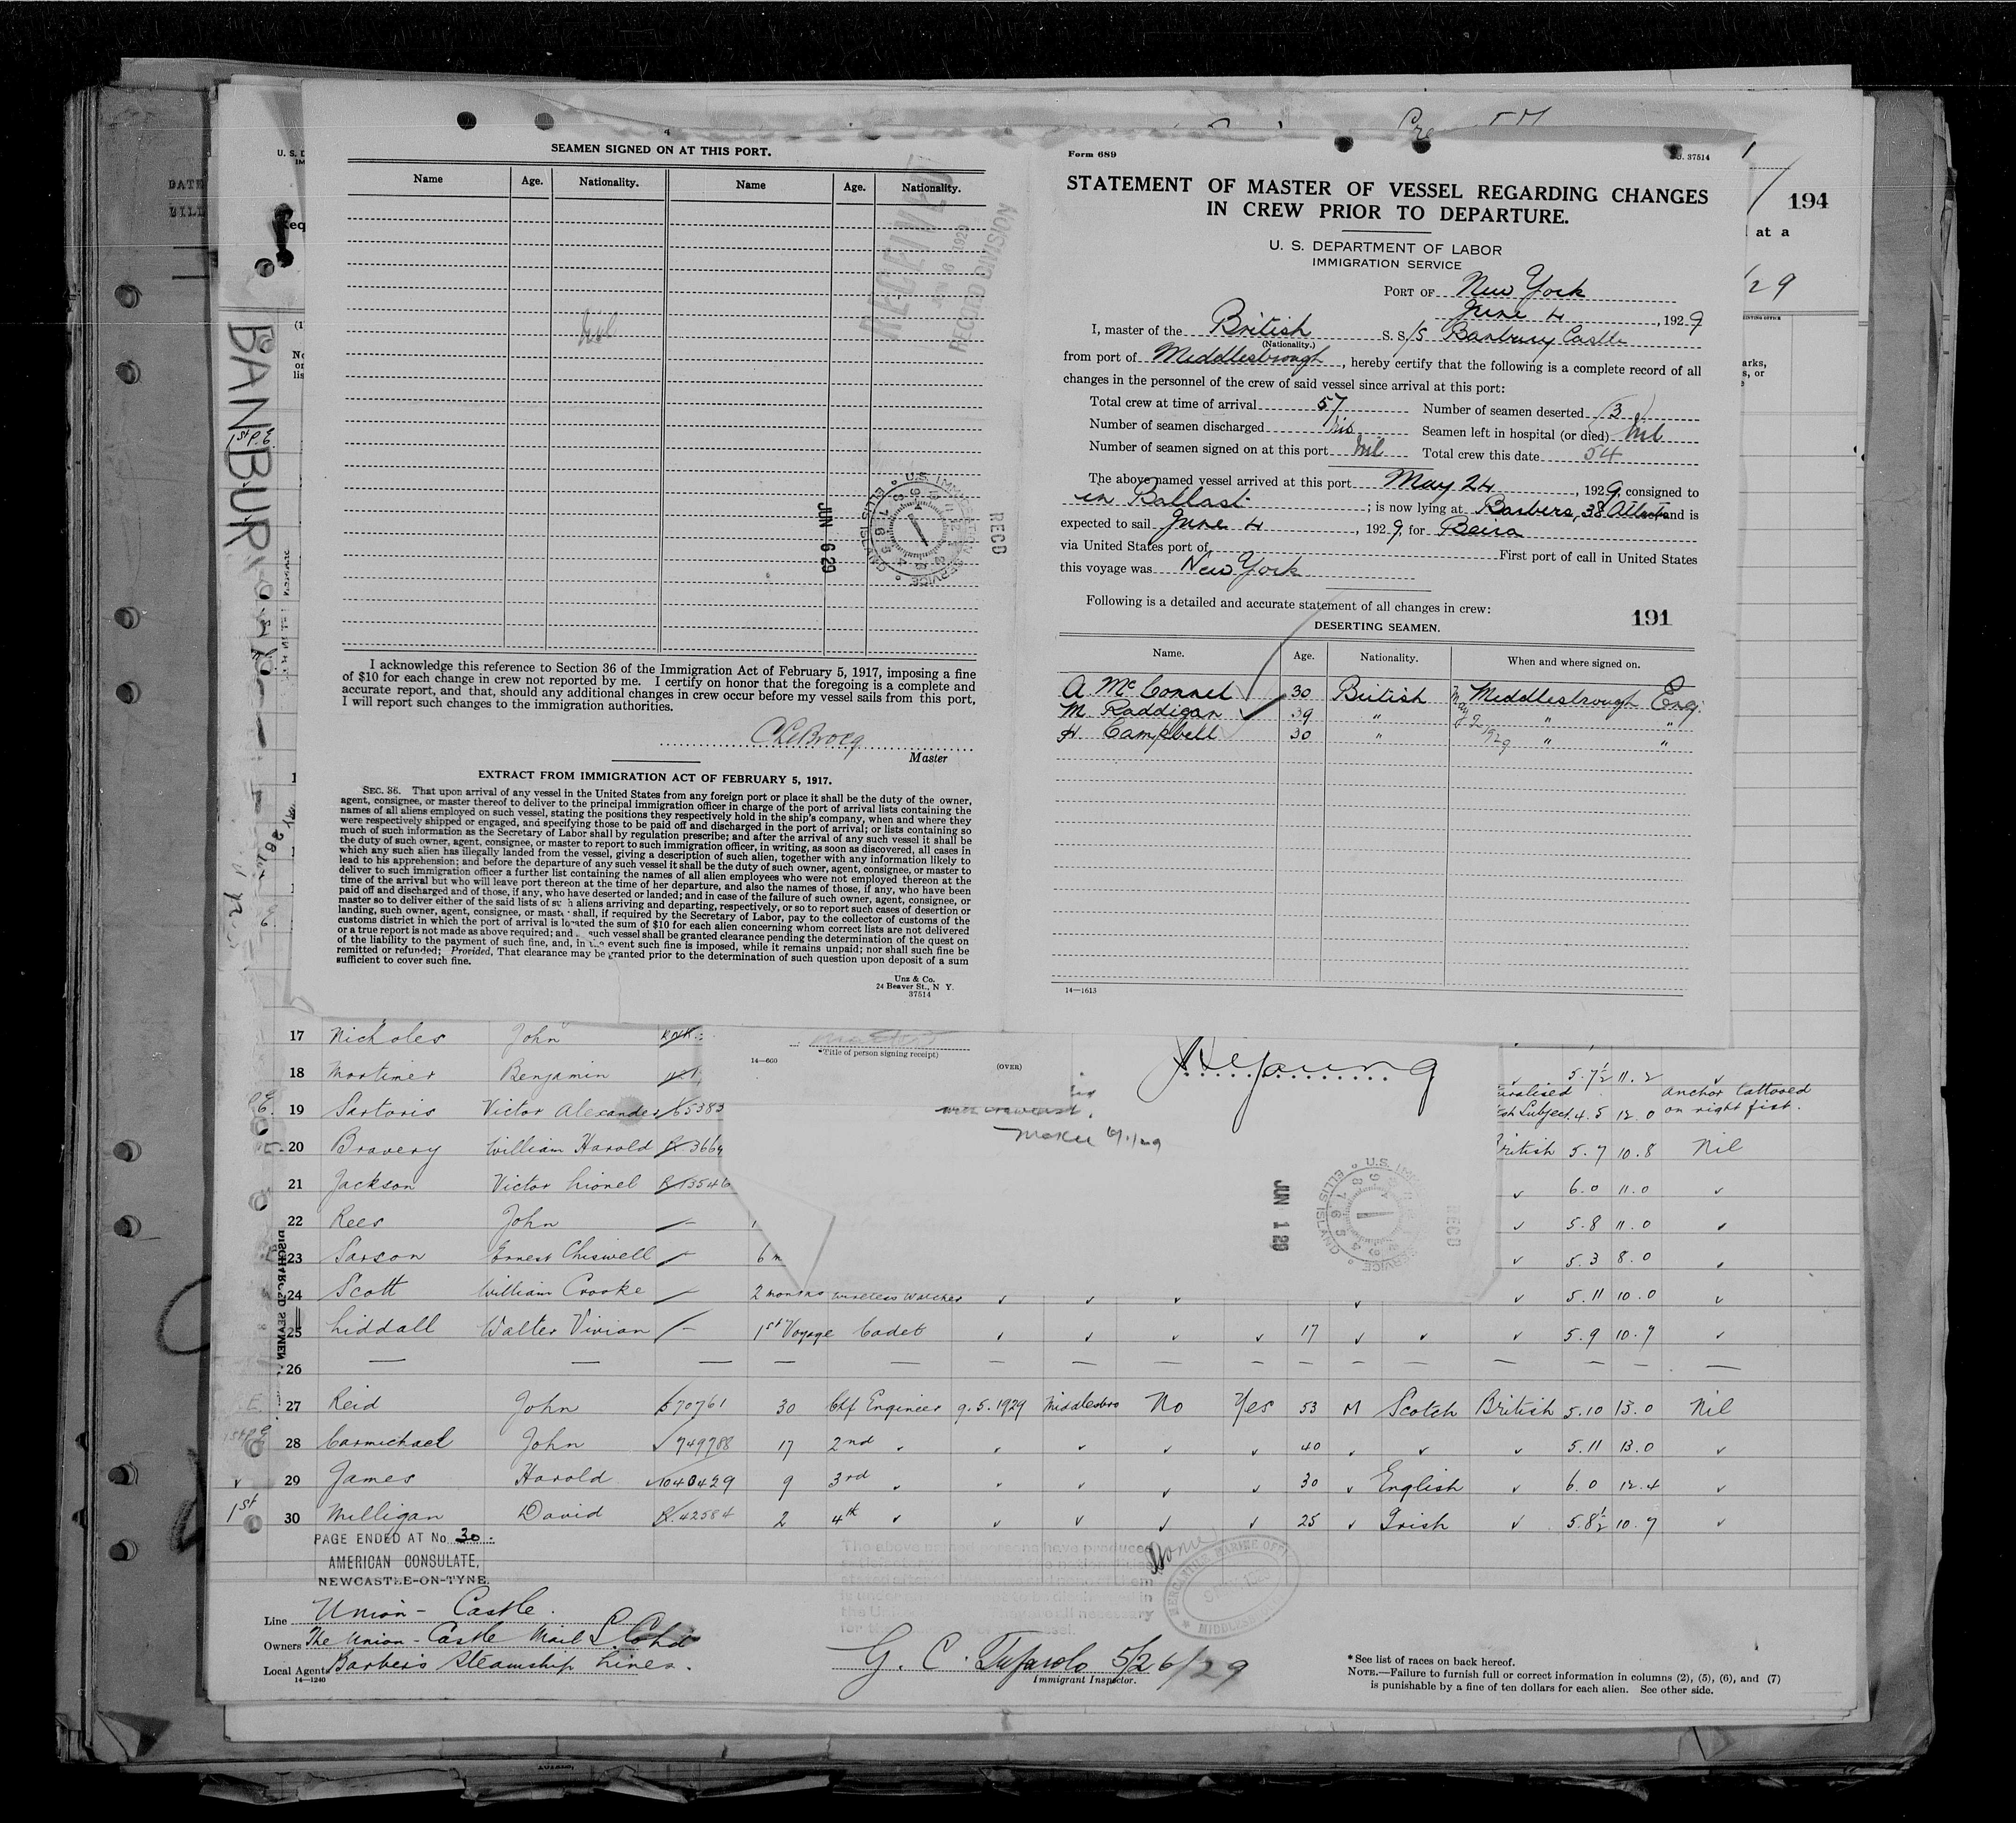 4
SEAMEN SIGNED ON AT THIS PORT.
Name Age. Nationality. Name Age. Nationality.
Nil
RECEIVED
JUN 6 1929
RECORD DIVISION
RECD
U.S. IMMIGRATION SERVICE
ELLIS ISLAND
JUN 6 29
I acknowledge this reference to Section 36 of the Immigration Act of February 5, 1917, imposing a fine
of $10 for each change in crew not reported by me. I certify on honor that the foregoing is a complete and
accurate report, and that, should any additional changes in crew occur before my vessel sails from this port,
I will report such changes to the immigration authorities.
C LeBrocq
Master
EXTRACT FROM IMMIGRATION ACT OF FEBRUARY 5, 1917.
SEC. 36. That upon arrival of any vessel in the United States from any foreign port or place it shall be the duty of the owner,
agent, consignee, or master thereof to deliver to the principal immigration officer in charge of the port of arrival lists containing the
names of all aliens employed on such vessel, stating the positions they respectively hold in the ship's company, when and where they
were respectively shipped or engaged, and specifying those to be paid off and discharged in the port of arrival; or lists containing so
much of such information as the Secretary of Labor shall by regulation prescribe; and after the arrival of any such vessel it shall be
the duty of such owner, agent, consignee, or master to report to such immigration officer, in writing, as soon as discovered, all cases in
which any such alien has illegally landed from the vessel, giving a description of such alien, together with any information likely to
lead to his apprehension; and before the departure of any such vessel it shall be the duty of such owner, agent, consignee, or master to
deliver to such immigration officer a further list containing the names of all alien employees who were not employed thereon at the
time of the arrival but who will leave port thereon at the time of her departure, and also the names of those, if any, who have been
paid off and discharged and of those, if any, who have deserted or landed; and in case of the failure of such owner, agent, consignee, or
master so to deliver either of the said lists of such aliens arriving and departing, respectively, or so to report such cases of desertion or
landing, such owner, agent, consignee, or master shall, if required by the Secretary of Labor, pay to the collector of customs of the
customs district in which the port of arrival is located the sum of $10 for each alien concerning whom correct lists are not delivered
or a true report is not made as above required; and such vessel shall be granted clearance pending the determination of the quest on
of the liability to the payment of such fine, and, in the event such fine is imposed, while it remains unpaid; nor shall such fine be
remitted or refunded; Provided, That clearance may be granted prior to the determination of such question upon deposit of a sum
sufficient to cover such fine.
Unz & Co.
24 Beaver St., N Y.
37514
Form 689
37514
STATEMENT OF MASTER OF VESSEL REGARDING CHANGES
IN CREW PRIOR TO DEPARTURE.
U. S. DEPARTMENT OF LABOR
IMMIGRATION SERVICE
PORT OF New York
June 4, 1929
I, master of the British S. S. Banbury Castle
(Nationality.)
from port of Middlesbrough, hereby certify that the following is a complete record of all
changes in the personnel of the crew of said vessel since arrival at this port:
Total crew at time of arrival 57 Number of seamen deserted 3
Number of seamen discharged Nil Seamen left in hospital (or died) Nil
Number of seamen signed on at this port Nil Total crew this date 54
The above named vessel arrived at this port May 24, 1929, consigned to
in Ballast; is now lying at Barbers, 38 and is
expected to sail June 4, 1929, for Beira
via United States port of First port of call in United States
this voyage was New York
Following is a detailed and accurate statement of all changes in crew:
191
DESERTING SEAMEN.
Name. Age. Nationality. When and where signed on.
A McConnel 30 British Middlesbrough Eng.
M Raddigan 39 " May 9 " "
H. Campbell 30 " 1929 " "
14—1613
194
at a
29
BANBUR
1st P.E.
17 Nicholes John
18 Mortimer Benjamin 5.7½ 11.2 ✓
19 Sartoris Victor Alexander 65383 4.5 12.0 anchor tattooed on right fist.
20 Bravery William Harold R 3664 British 5.7 10.8 Nil
21 Jackson Victor Lionel R 13546 ✓ 6.0 11.0 ✓
22 Rees John — ✓ 5.8 11.0 ✓
23 Sarson Ernest Chiswell — 6 m ✓ 5.3 8.0 ✓
24 Scott William Crooke — 2 months Wireless Watcher ✓ ✓ ✓ ✓ ✓ 5.11 10.0 ✓
25 Liddall Walter Vivian — 1st Voyage Cadet ✓ ✓ ✓ ✓ 17 ✓ ✓ ✓ 5.9 10.7 ✓
26 — — — — — — — — — — — — — — — —
27 Reid John 570761 30 Chf Engineer 9.5.1929 Middlesbro No Yes 53 M Scotch British 5.10 13.0 Nil
28 Carmichael John 749788 17 2nd ✓ ✓ ✓ ✓ ✓ 40 ✓ ✓ ✓ 5.11 13.0 ✓
29 James Harold 1040429 9 3rd ✓ ✓ ✓ ✓ ✓ 30 ✓ English ✓ 6.0 12.4 ✓
1st
30 Milligan David R. 42584 2 4th ✓ ✓ ✓ ✓ ✓ 25 ✓ Irish ✓ 5.8½ 10.7 ✓
DISCHARGED SEAMEN
14—600
*Title of person signing receipt)
(OVER)
JUN 1 29
RECD
U.S. IMM
ELLIS ISLAND
PAGE ENDED AT No 30
AMERICAN CONSULATE,
NEWCASTLE-ON-TYNE.
The above named persons have produced
MERCANTILE MARINE OFFI
MIDDLESB
Line Union - Castle.
Owners The Union - Castle Mail S.S. Co Ltd
Local Agents Barber's Steamship Lines.
14—1240
G. C. Tufarolo 5/26/29
Immigrant Inspector.
*See list of races on back hereof.
NOTE.—Failure to furnish full or correct information in columns (2), (5), (6), and (7)
is punishable by a fine of ten dollars for each alien. See other side.